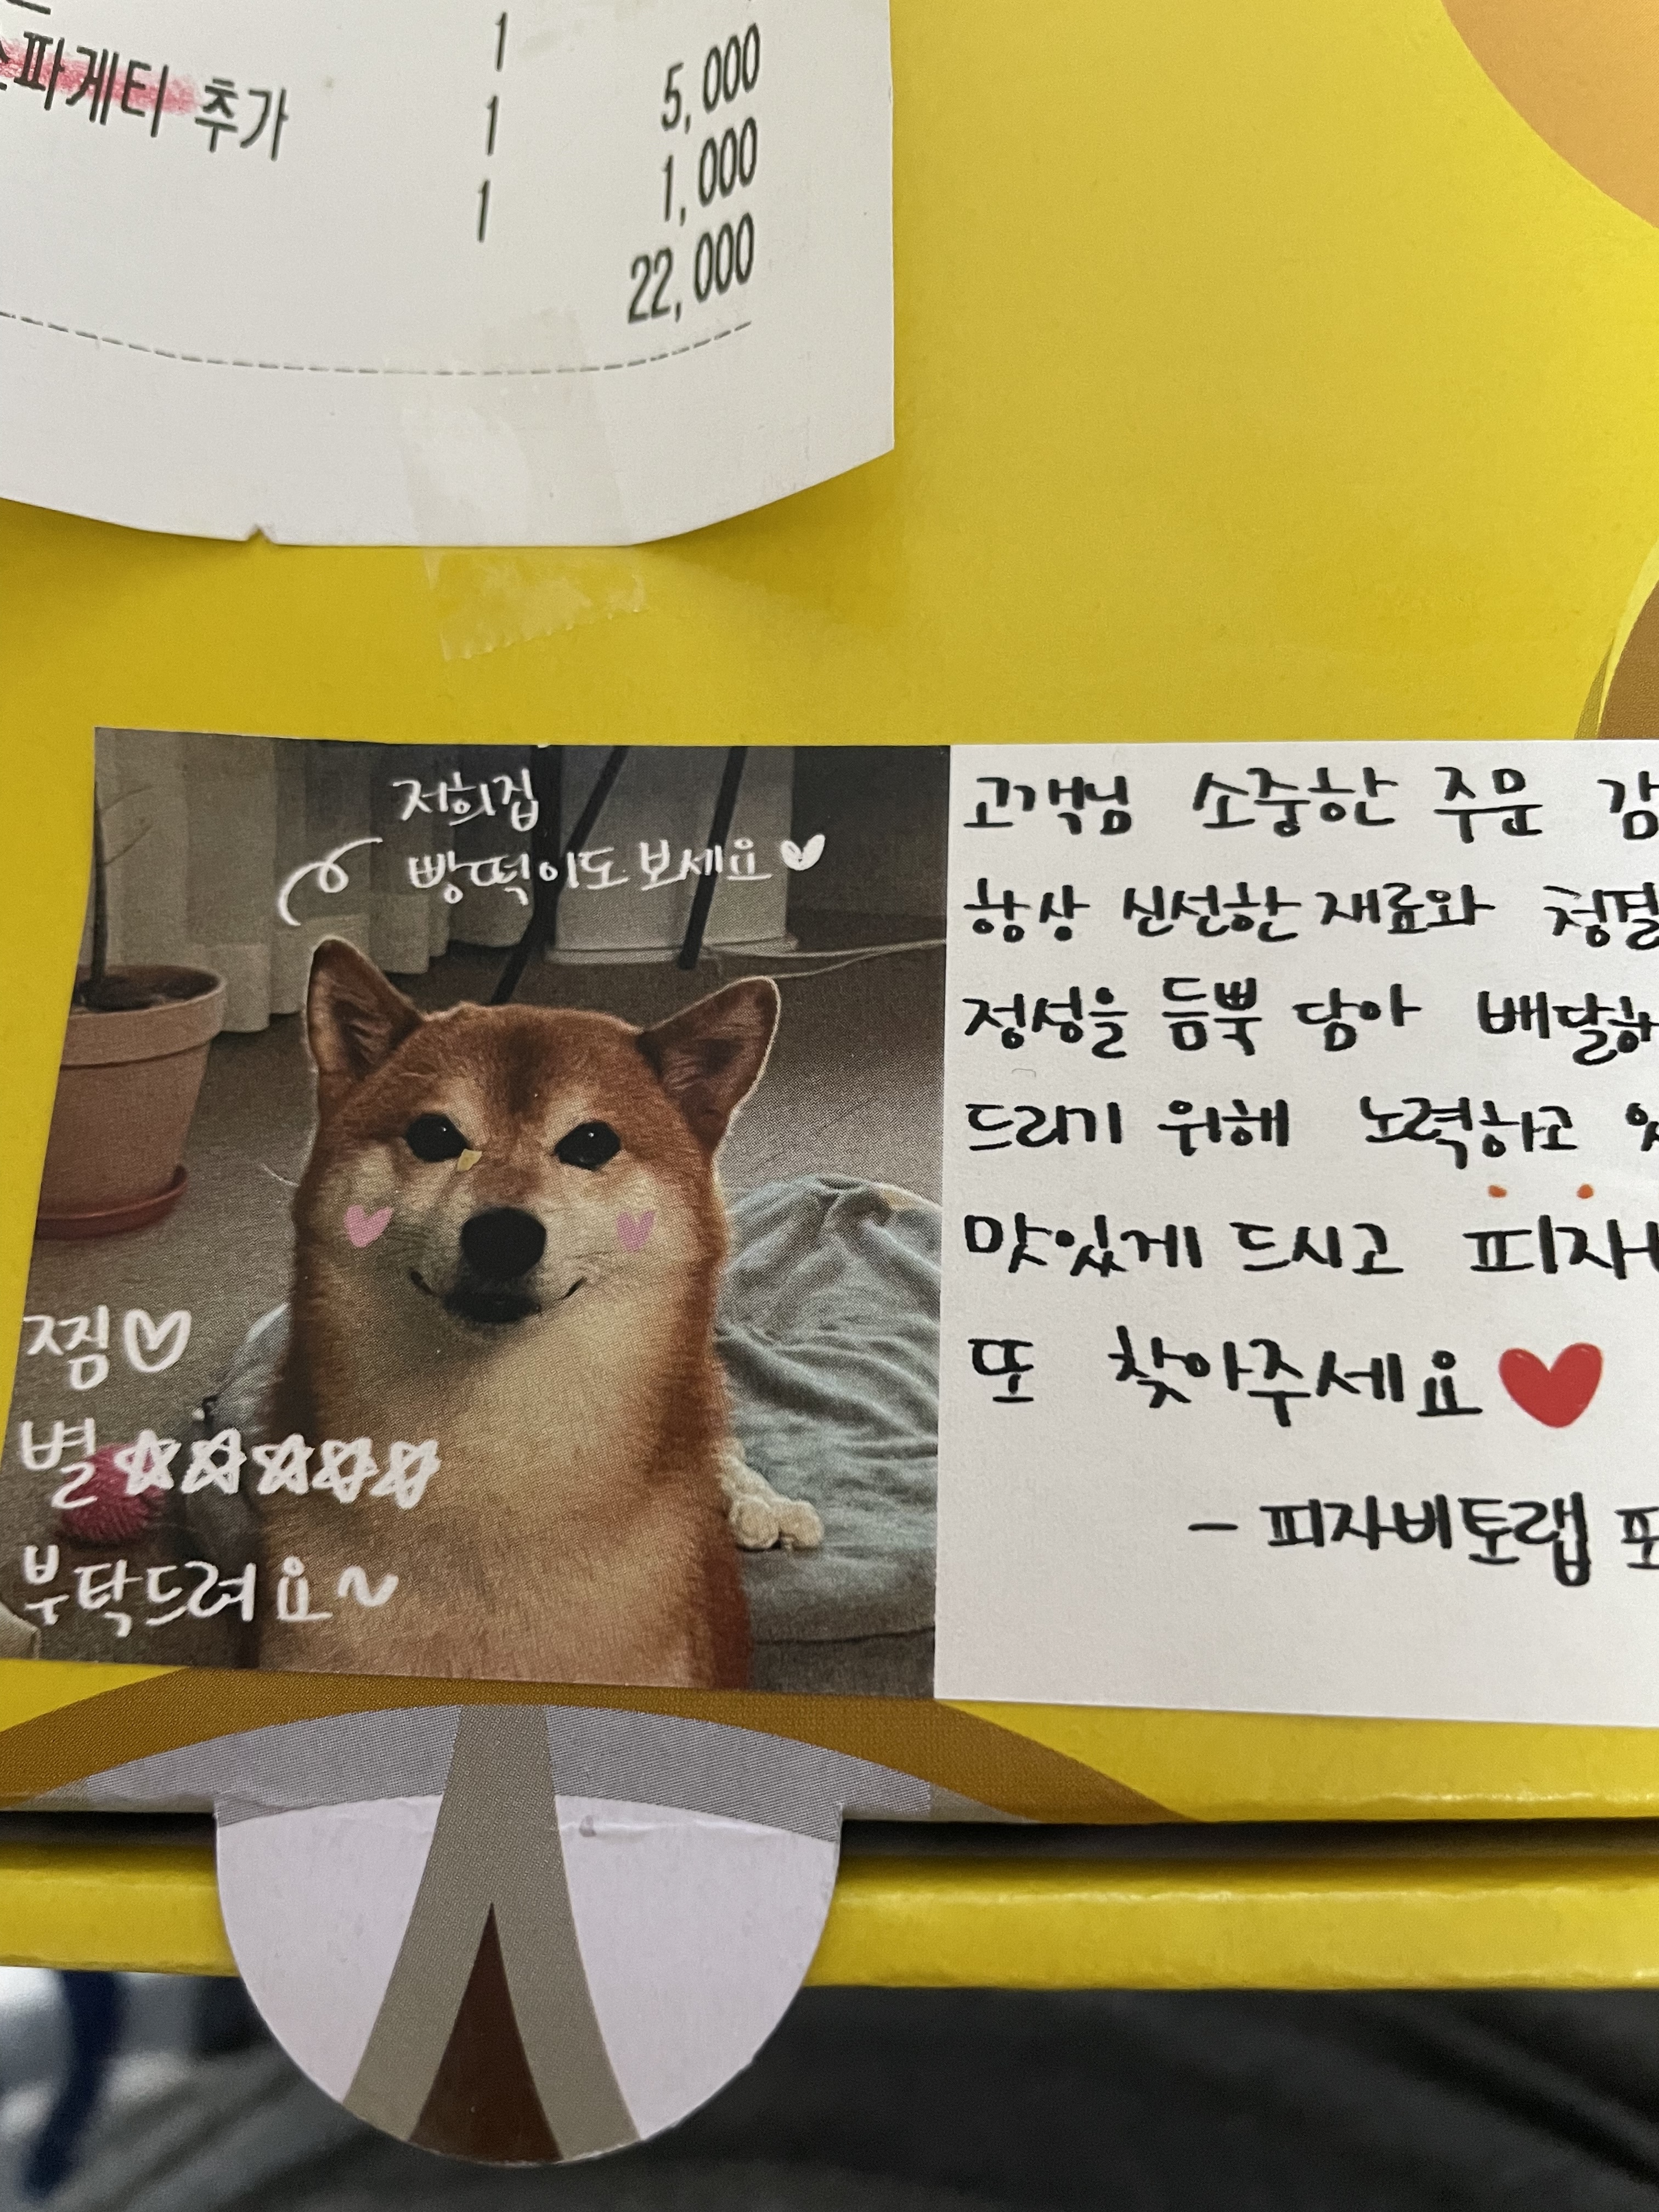 1
파게티 추가 1 5,000
1 1,000
22,000
저희집
빵떡이도 보세요♡
찜♡
별☆☆☆☆☆
부탁드려요~
고객님 소중한 주문 감
항상 신선한 재료와 청결
정성을 듬뿍 담아 배달하
드리기 위해 노력하고
맛있게 드시고 피자
또 찾아주세요♥
- 피자비토랩